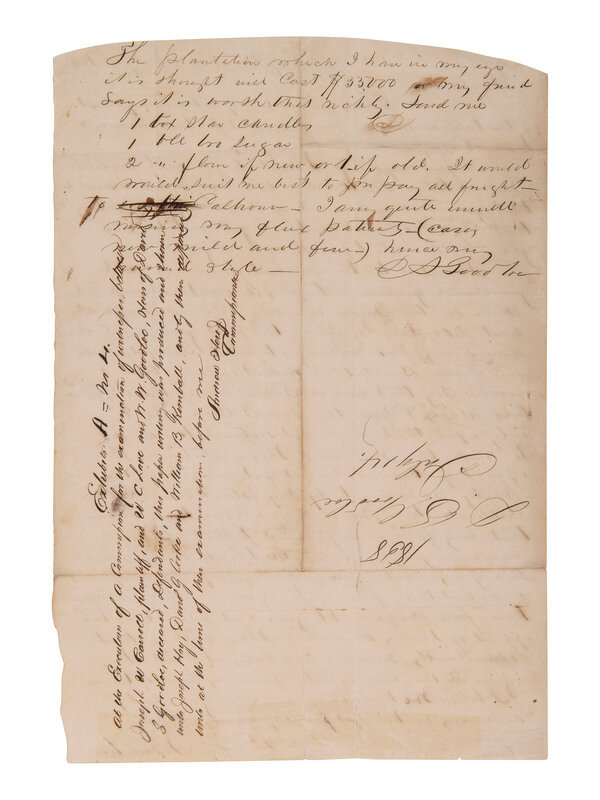 The plantation which I have in my eye
it is thought will cost $35000 my friend
says it is worth that richly. Send me
1 box star candles
1 bbl bro sugar
2 " flour if new or 1 if old. It would
would suit me best to pay all freight
to Calhoun - I am quite unwell
nursing my flux patients - (cases
mild and few -) hence my
style - D S Goodloe
Exhibit A = No 4.
At the Execution of a Commission for the examination of witnesses, between
Joseph W Carroll, plaintiff, and W. C Love and W. W. Goodloe, Heirs of David
S Goodloe, deceased, Defendants, this paper writing was produced and shown
unto Joseph Hoy, David G Cooke and William B. Kimball, and by them deposed
unto at the time of their examination before me
Thomas
Commissioner
D. S. Goodloe
July 14.
1858